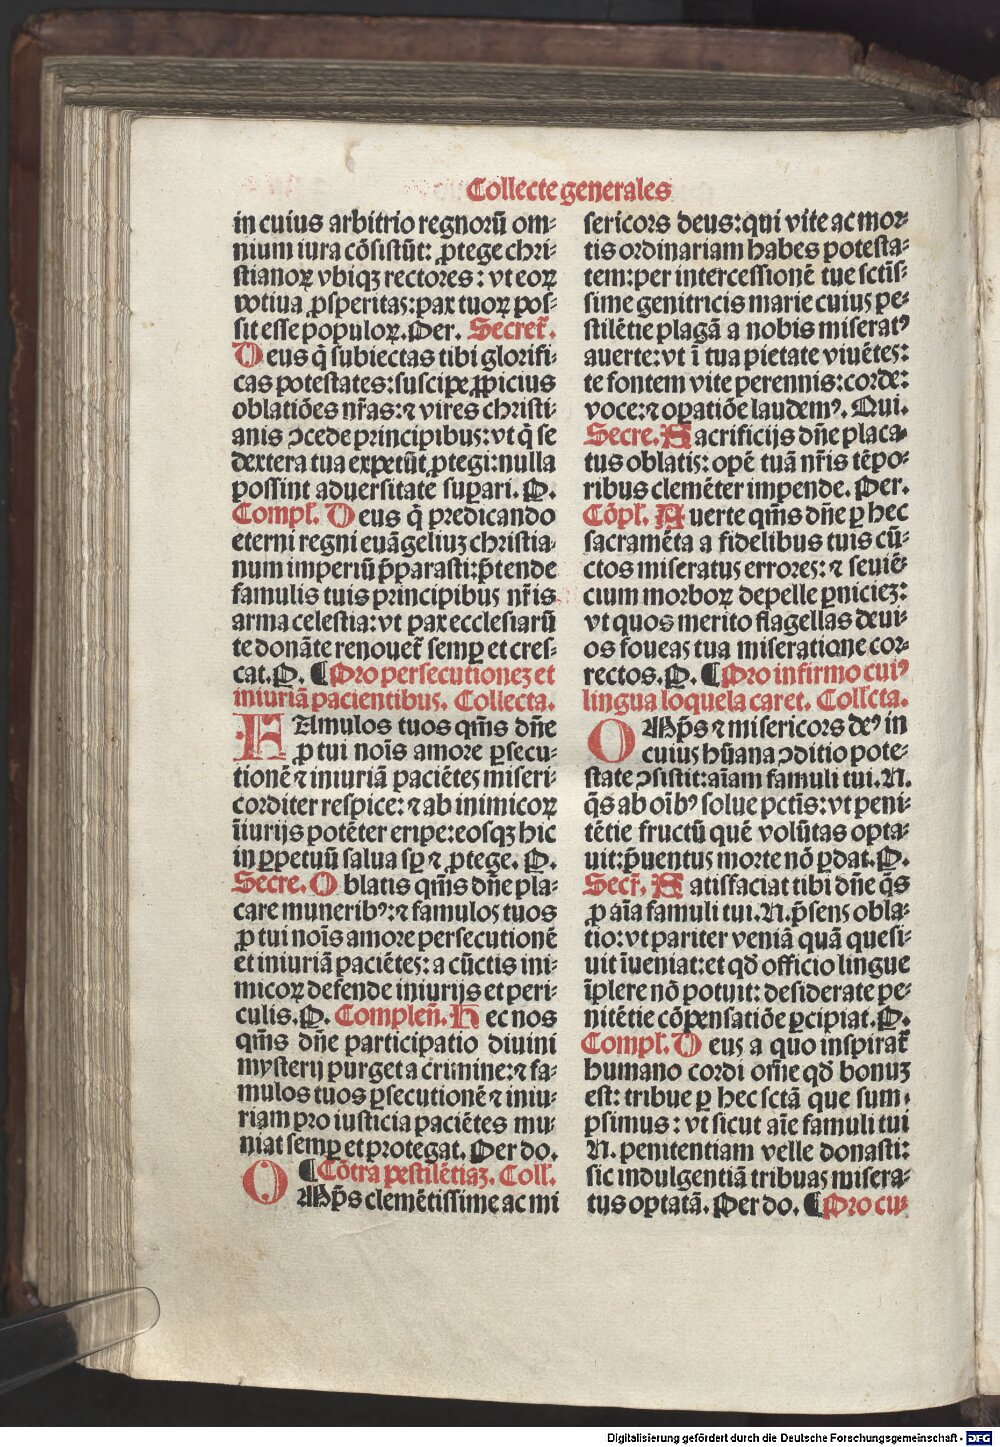 Collecte generales
in cuius arbitrio regnorū om⸗
nium iura cōsistūt: ꝓtege chri⸗
stianoꝝ vbiqꝫ rectores: vt eoꝝ
votiua ꝓsperitas: pax tuoꝝ pos⸗
sit esse populoꝝ. Per. Secret̄.
Deus q̄ subiectas tibi glorifi⸗
cas potestates: suscipe ꝓpicius
oblatiōes nr̄as: ⁊ vires christi⸗
anis ↄcede principibus: vt q̄ se
dextera tua expetūt ꝓtegi: nulla
possint aduersitate suꝑari. P.
Compl̄. Deus q̄ predicando
eterni regni euāgeliuꝫ christia⸗
num imperiū p̄parasti: p̄tende
famulis tuis principibus nr̄is
arma celestia: vt pax ecclesiarū
te donāte renouet̄ semꝑ et cres⸗
cat. P. ¶ Pro persecutioneꝫ et
iniuriā pacientibus. Collecta.
FAmulos tuos qm̄s dn̄e
ꝓ tui noīs amore ꝑsecu⸗
tionē ⁊ iniuriā paciētes miseri⸗
corditer respice: ⁊ ab inimicoꝝ
īiurijs potēter eripe: eosqꝫ hic
in ꝑpetuū salua sꝑ ⁊ ꝓtege. P.
Secre. Oblatis qm̄s dn̄e pla⸗
care munerib⁹: ⁊ famulos tuos
ꝓ tui noīs amore persecutionē
et iniuriā paciētes: a cūctis ini⸗
micoꝝ defende iniurijs et peri⸗
culis. P. Complen̄. Hec nos
qm̄s dn̄e participatio diuini
mysterij purget a crimine: ⁊ fa⸗
mulos tuos ꝑsecutionē ⁊ iniu⸗
riam pro iusticia paciētes mu⸗
niat semꝑ et protegat. Per do.
¶ Cōtra pestilētiaꝫ. Coll̄.
OMp̄s clemētissime ac mi
sericors deus: qui vite ac mor⸗
tis ordinariam habes potesta⸗
tem: per intercessionē tue sctīs⸗
sime genitricis marie cuius pe⸗
stilētie plagā a nobis miserat⁹
auerte: vt ī tua pietate viuētes:
te fontem vite perennis: corde:
voce: ⁊ oꝑatiōe laudem⁹. Qui.
Secre. Sacrificijs dn̄e placa⸗
tus oblatis: opē tuā nr̄is tēpo⸗
ribus clemēter impende. Per.
Cōpl̄. Auerte qm̄s dn̄e ꝑ hec
sacramēta a fidelibus tuis cū⸗
ctos miseratus errores: ⁊ seuiē⸗
cium morboꝝ depelle ꝑnicieꝫ:
vt quos merito flagellas deui⸗
os foueas tua miseratione cor⸗
rectos. P. ¶ Pro infirmo cui⁹
lingua loquela caret. Coll̄cta.
OMp̄s ⁊ misericors de⁹ in
cuius hūana ↄditio pote⸗
state ↄsistit: aīam famuli tui. N.
q̄s ab oīb⁹ solue pctīs: vt peni⸗
tētie fructū quē volūtas opta⸗
uit: p̄uentus morte nō ꝑdat. P.
Secr̄. Satisfaciat tibi dn̄e q̄s
ꝓ aīa famuli tui. N. p̄sens obla⸗
tio: vt pariter veniā quā quesi⸗
uit īueniat: et qd̄ officio lingue
īplere nō potuit: desiderate pe⸗
nitētie cōpensatiōe ꝑcipiat. P.
Compl̄. Deus a quo inspirat̄
humano cordi om̄e qd̄ bonuꝫ
est: tribue ꝑ hec sctā que sum⸗
psimus: vt sicut aīe famuli tui
N. penitentiam velle donasti:
sic indulgentiā tribuas misera⸗
tus optatā. Per do. ¶ Pro cu⸗
Digitalisierung gefördert durch die Deutsche Forschungsgemeinschaft - DFG